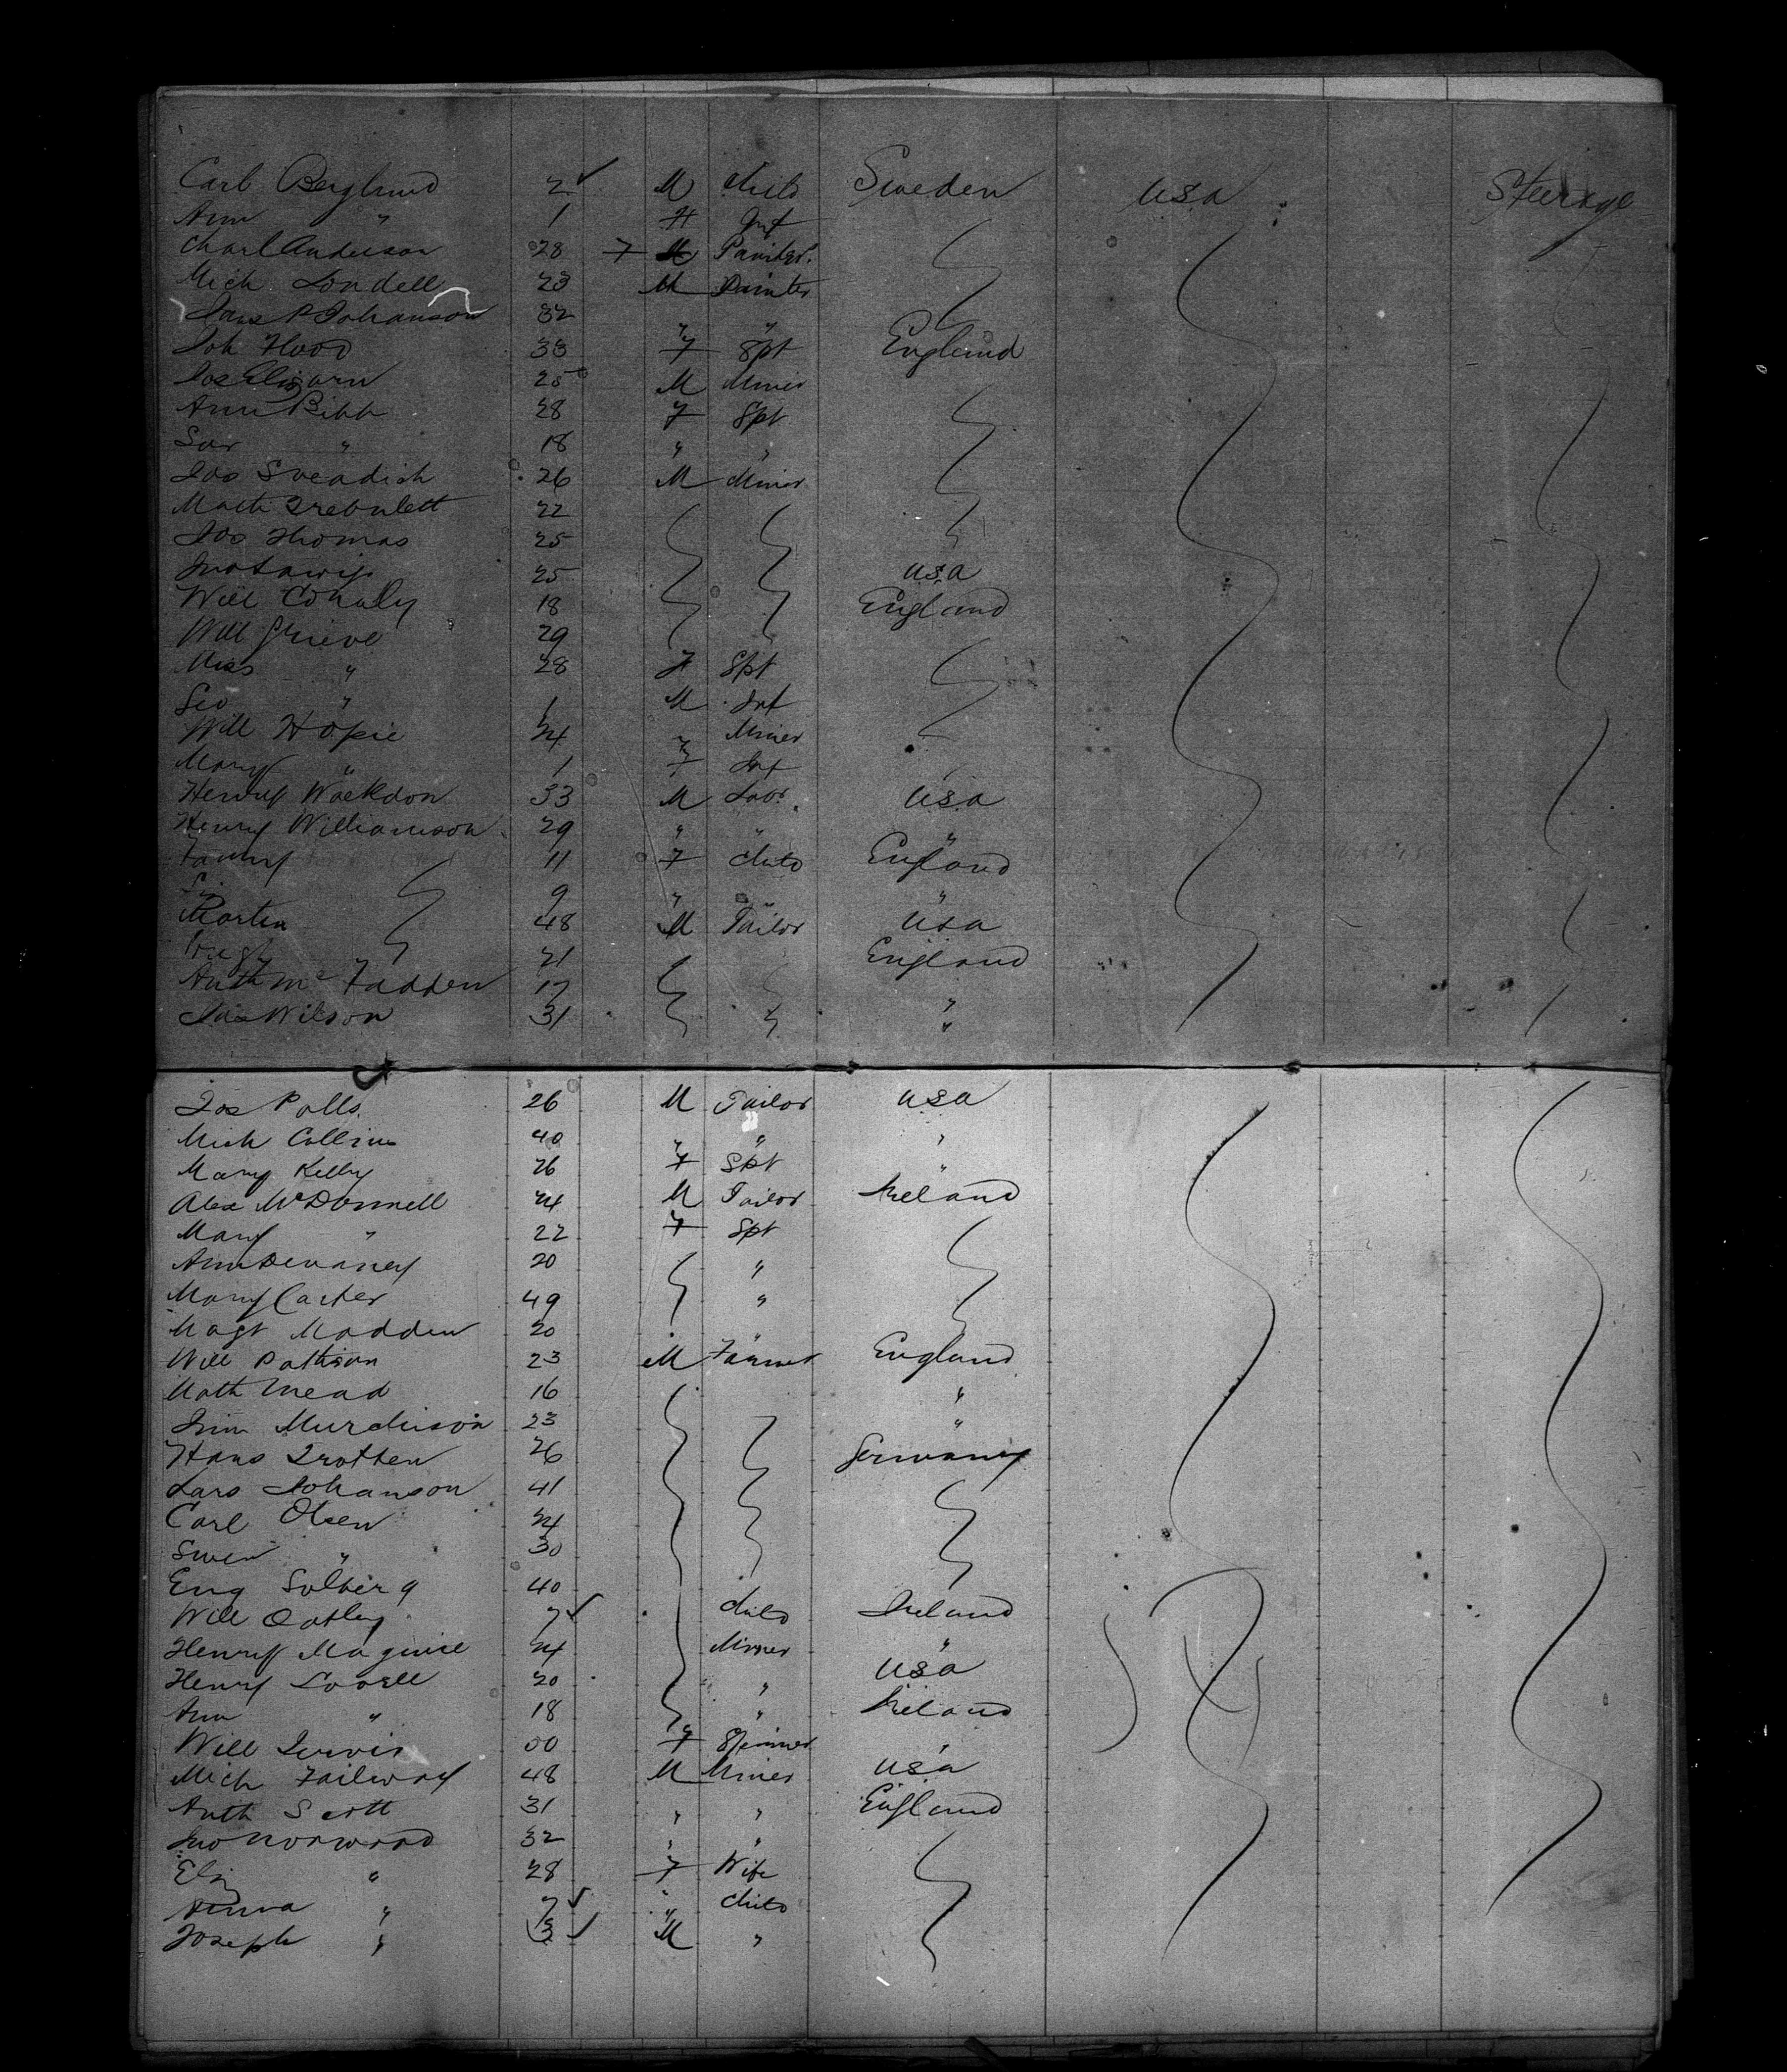 Carl Berglund 2 ✓ M Child Sweden USA Steerage
Ann " 1 F Inf
Charl Anderson 28 F M Painter
Mich Londell 23 M Painter
Lars P Johanson 32 " "
Joh Hood 38 F Spt England
Jos 25 M Miner
Ann Bibb 28 F Spt
Sar " 18 " "
Jos 26 M Miner
Math 22
Jos Thomas 25
Jno 25 USA
Will 18 England
Will Grieve 29
Miss " 28 F Spt
Geo " 1 M Inf
Will 24 " Miner
Mary " 1 F Inf
Henry 33 M Labr USA
Henry Williamson 29 " " "
Fanny 11 F Child England
9 " " "
Martin 48 M Tailor USA
Hugh 21 England
Anth McFadden 17 "
Jas Wilson 31 "
Jos Palls 26 M Tailor USA
Mich Collins 40 " " "
Mary Kelly 26 F Spt "
Alex McDonnell 24 M Tailor Ireland
Mary " 22 F Spt
Ann Devaney 20 "
Mary Carter 49 "
Magt Madden 20 "
Will Pattison 23 M Farmer England
Math Mead 16 "
Jim Murchison 23 "
Hans Trotten 26 Germany
Lars Johanson 41
Carl Olsen 24
Swen " 30
Eng Solberg 40
Will Oatley 7 ✓ Child Ireland
Henry Maguire 24 Miner "
Henry Lovell 20 " USA
Ann " 18 " Ireland
Will 00 F Spinner "
Mich 48 M Miner USA
Anth Scott 31 " " England
Jno Norwood 32 " "
Eliz " 28 F Wife
Anna " 7 ✓ " Child
Joseph " 3 ✓ M "